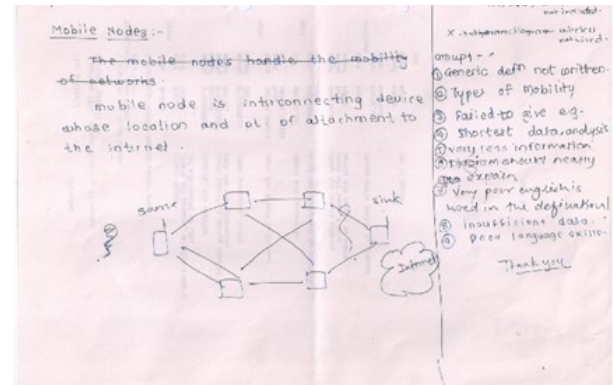 Mobile Nodes :-
The mobile nodes handle the mobility
of networks.
mobile node is interconnecting device
whose location and pt. of attachment to
the internet.
sink
Internet
not included.
wireless
not wired.
Group 1 -
① Generic defn not written.
② Types of mobility
③ Failed to give e.g.
④ Shortest data analysis
⑤ very less information
explain
⑦ Very poor english is
used in the defination
⑧ insufficient data.
⑨ Poor language skills.
Thank you